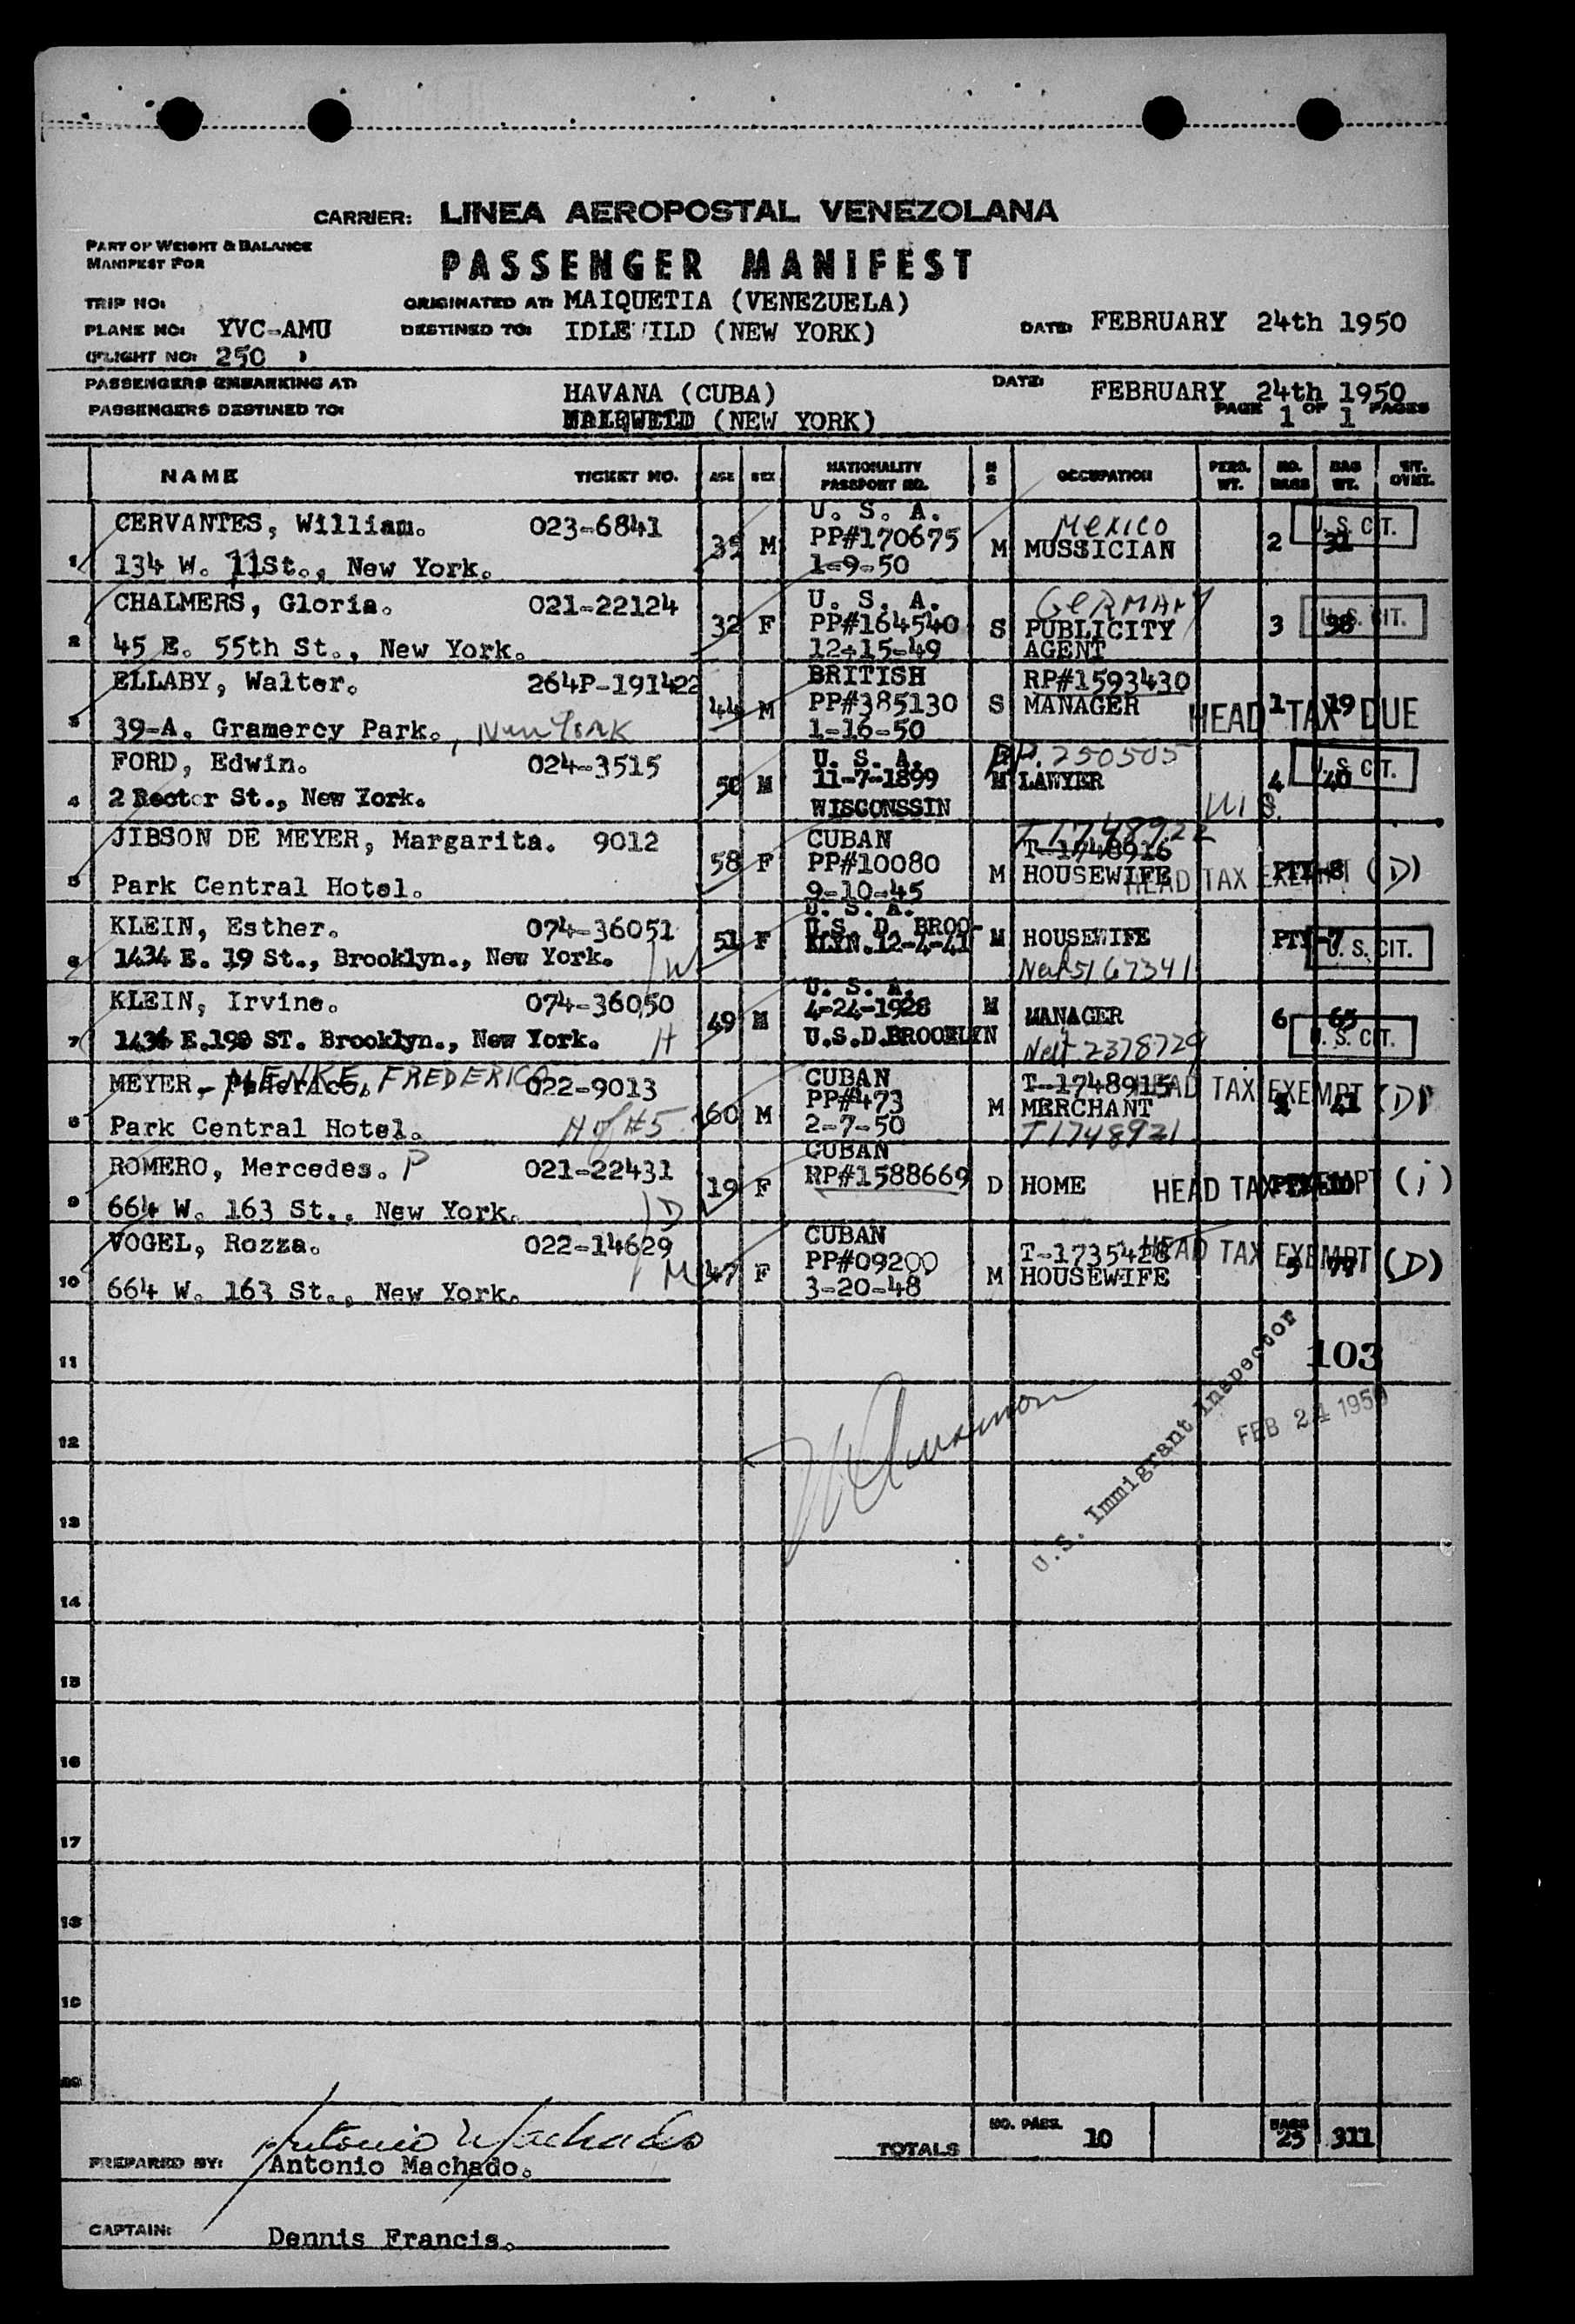 CARRIER: LINEA AEROPOSTAL VENEZOLANA
PART OF WEIGHT & BALANCE
MANIFEST FOR
PASSENGER MANIFEST
TRIP NO:
ORIGINATED AT: MAIQUETIA (VENEZUELA)
PLANE NO: YVC-AMU
DESTINED TO: IDLE ILD (NEW YORK)
DATE: FEBRUARY 24th 1950
(FLIGHT NO: 250 )
PASSENGERS EMBARKING AT: HAVANA (CUBA)
DATE: FEBRUARY 24th 1950
PASSENGERS DESTINED TO: (NEW YORK)
PAGE 1 OF 1 PAGES
NAME TICKET NO. AGE SEX NATIONALITY PASSPORT NO. M S OCCUPATION PERS. WT. NO. BAGS BAG WT. SIT. OVNT.
U. S. A.
CERVANTES, William. 023-6841 Mexico U. S. CIT.
1 35 M PP#170675 M MUSSICIAN 2 31
134 W. 71St., New York. 1-9-50
CHALMERS, Gloria. 021-22124 U. S. A. GERMANY
2 32 F PP#164540 S PUBLICITY 3 98 U. S. CIT.
45 E. 55th St., New York. 12-15-49 AGENT
ELLABY, Walter. 264P-191422 BRITISH RP#1593430
3 44 M PP#385130 S MANAGER 1 19 HEAD TAX DUE
39-A. Gramercy Park., New York 1-16-50
FORD, Edwin. 024-3515 U. S. A. P.P. 250505
50 M 11-7-1899 M LAWYER 4 40 U. S. CIT.
4 2 Rector St., New York. WISCONSSIN WIS.
T1748922
JIBSON DE MEYER, Margarita. 9012 CUBAN T-1748916
5 58 F PP#10080 M HOUSEWIFE PTY-8 HEAD TAX EXEMPT (D)
Park Central Hotel. 9-10-45
U. S. A.
KLEIN, Esther. 074-36051 U.S. D. BROO-
6 51 F KLYN.12-4-41 M HOUSEWIFE PTY-7 U. S. CIT.
1434 E. 19 St., Brooklyn., New York. W Nat 5167341
U. S. A.
KLEIN, Irvine. 074-36050 4-24-1928 M
7 49 M MANAGER 6 65
E. ST. Brooklyn., New York. H U.S.D.BROOKLYN Nat 2378729 U. S. CIT.
MENKE, FREDERICO
MEYER, Federico. 022-9013 CUBAN T-1748915 HEAD TAX EXEMPT (D)
8 60 M PP#473 M MERCHANT 41
Park Central Hotel. H of #5 2-7-50 T1748921
ROMERO, Mercedes. P 021-22431 CUBAN
9 19 F RP#1588669 D HOME HEAD TAX EXEMPT (i)
664 W. 163 St., New York. D
VOGEL, Rozza. 022-14629 CUBAN T-1735428 HEAD TAX EXEMPT (D)
10 47 F PP#09200 M HOUSEWIFE
664 W. 163 St., New York. M 3-20-48
11 103
12 FEB 24 1950
U.S. Immigrant Inspector
13
14
15
16
17
18
19
20
TOTALS NO. PASS. 10 BAGS 25 311
Antonio Machado
PREPARED BY: Antonio Machado.
CAPTAIN: Dennis Francis.